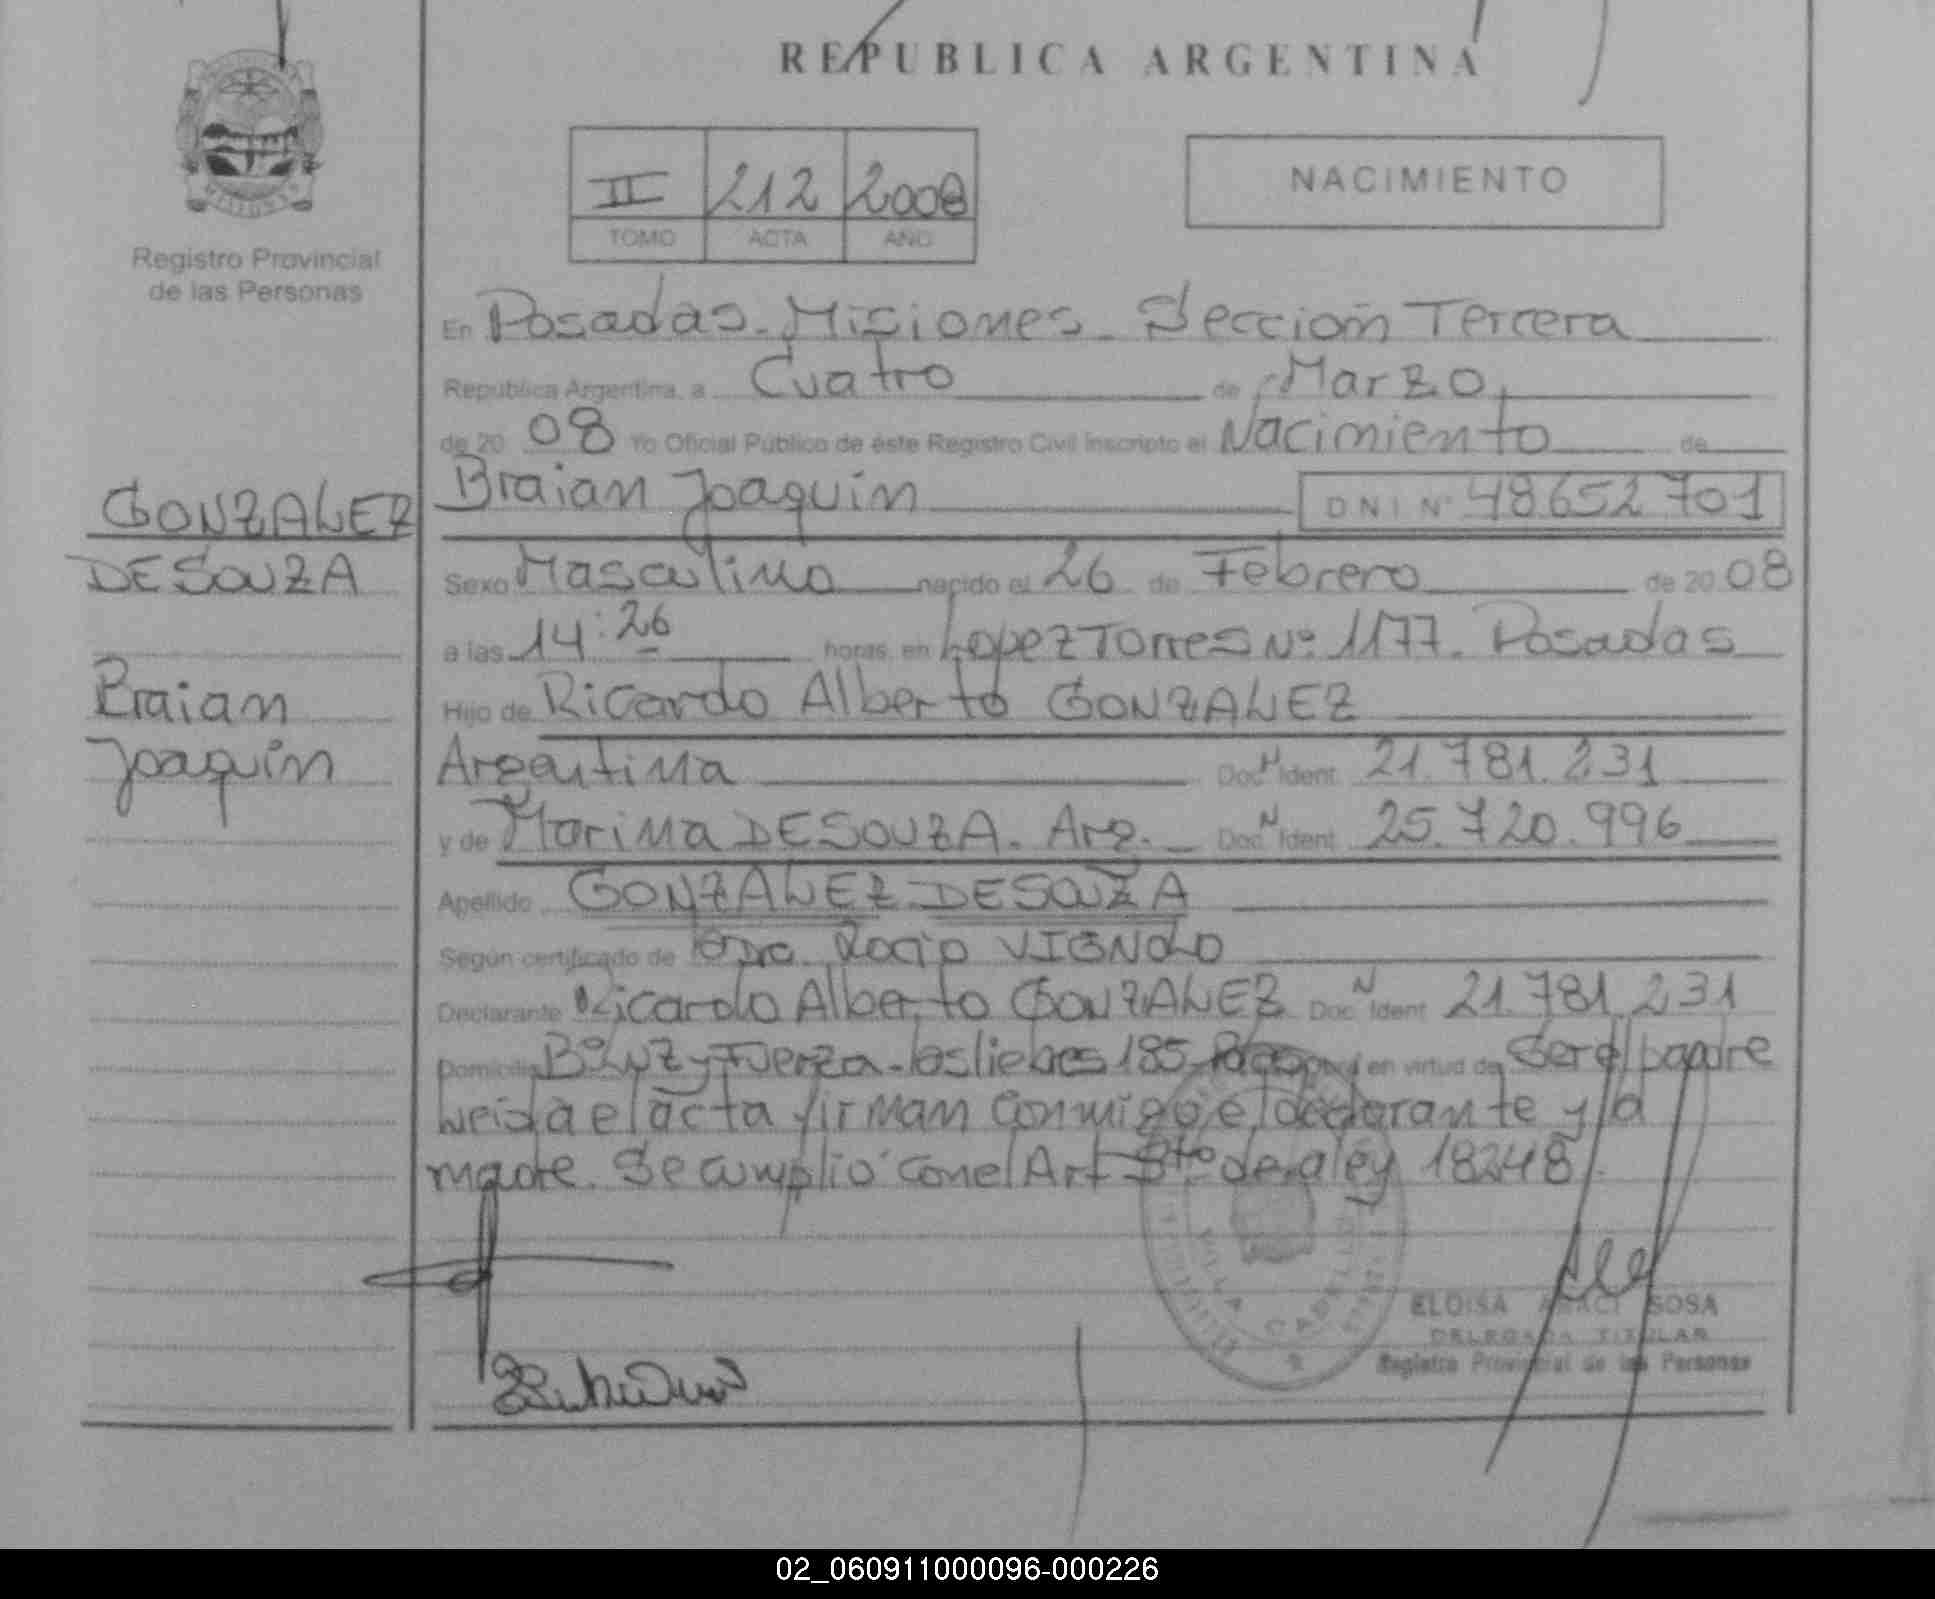 REPUBLICA ARGENTINA
II 212 2008
TOMO ACTA AÑO
NACIMIENTO
MISIONES
Registro Provincial
de las Personas
En Posadas - Misiones - Sección Tercera
República Argentina, a Cuatro de Marzo
de 2008 Yo Oficial Público de éste Registro Civil inscripto el Nacimiento de
GONZALEZ
DE SOUZA
Braian
Joaquin
Braian Joaquin DNI Nº 48652701
Sexo Masculino nacido el 26 de Febrero de 2008
a las 14:26 horas, en Lopez Torres Nº 1177. Posadas
Hijo de Ricardo Alberto GONZALEZ
Argentina Doc. N Ident 21.781.231
y de Marina DE SOUZA. Arg. Doc. N Ident 25.720.996
Apellido GONZALEZ DE SOUZA
Según certificado de Dra. Rocio VIGNOLO
Declarante Ricardo Alberto GONZALEZ Doc. N Ident 21.781.231
Domicilio Bº Luz y Fuerza - las liebres 185 en virtud de Ser el padre
Leida el acta firman conmigo el declarante y la
madre. Se cumplió con el Art 8to de la ley 18248.
VILLA CABELLO
ELOISA ARACI SOSA
DELEGADA TITULAR
Registro Provincial de las Personas
02_060911000096-000226